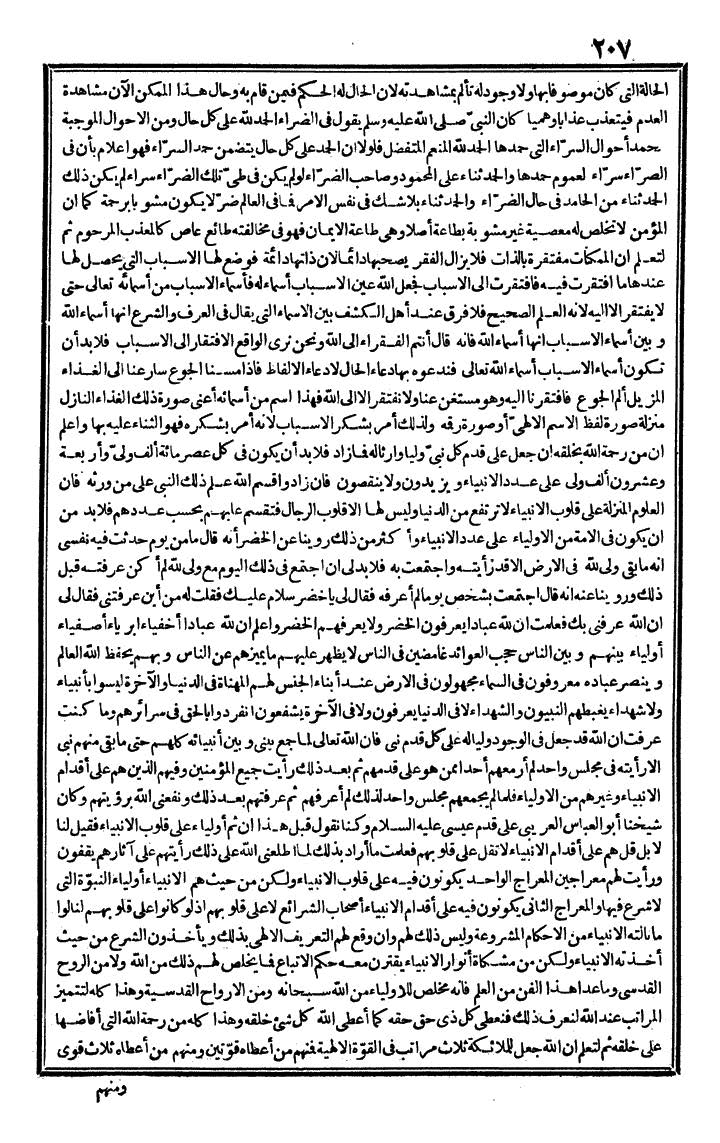 ٢٠٧
الحالة التي كان موصوفا بها ولا وجود له تألم بمشاهدته لان الحال له الحكم فيمن قام به وحال هذا الممكن الآن مشاهدة
العدم فيتعذب عذابا وهميا كان النبي صلى الله عليه وسلم يقول في الضراء الحمد لله على كل حال ومن الاحوال الموجبة
بحمد أحوال السرّاء التي حمدها الحمد لله المنعم المتفضل فاولا ان الحمد على كل حال يتضمن حمد السرّاء فهو اعلام بأن في
الضرّاء سرّاء لعموم حمدها والحمد ثناء على المحمود وصاحب الضرّاء لو لم يكن في طيّ تلك الضرّاء سراء لم يكن ذلك
الحمد ثناء من الحامد في حال الضرّاء والحمد ثناء بلا شك في نفس الامر فما في العالم ضرّ لا يكون مشوبا برحمة كما ان
المؤمن لا تخلص له معصية غير مشوبة بطاعة أصلا وهي طاعة الايمان فهو في مخالفته طائع عاص كالمعذب المرحوم ثم
لتعلم ان الممكنات مفتقرة بالذات فلا يزال الفقر يصحبها دائما لان ذاتها دائمة فوضع لها الاسباب التي يحصل لها
عندها ما افتقرت فيه فافتقرت الى الاسباب فجعل الله عين الاسباب أسماء له فأسماء الاسباب من أسمائه تعالى حتى
لا يفتقر الا اليه لانه العلم الصحيح فلا فرق عند أهل الكشف بين الاسماء التي يقال في العرف والشرع انها أسماء الله
وبين أسماء الاسباب انها أسماء الله فانه قال أنتم الفقراء الى الله ونحن نرى الواقع الافتقار الى الاسباب فلا بد أن
تكون أسماء الاسباب أسماء الله تعالى فندعوه بها دعاء الحال لا دعاء الالفاظ فاذا مسنا الجوع سارعنا الى الغذاء
المزيل ألم الجوع فافتقرنا اليه وهو مستغن عنا ولا نفتقر الا الى الله فهذا اسم من أسمائه أعني صورة ذلك الغذاء النازل
منزلة صورة لفظ الاسم الالهيّ أو صورة رقمه ولذلك أمر بشكر الاسباب لانه أمر بشكره فهو الثناء عليه بها واعلم
ان من رحمة الله بخلقه ان جعل على قدم كل نبيّ وليا وارثا له فما زاد فلا بد أن يكون في كل عصر مائة ألف وليّ وأربعة
وعشرون ألف ولي على عدد الانبياء ويزيدون ولا ينقصون فان زادوا قسم الله علم ذلك النبي على من ورثه فان
العلوم المنزلة على قلوب الانبياء لا ترتفع من الدنيا وليس لها الا قلوب الرجال فتقسم عليهم بحسب عددهم فلا بد من
ان يكون في الامة من الاولياء على عدد الانبياء وأكثر من ذلك روينا عن الخضر أنه قال ما من يوم حدثت فيه نفسي
انه ما بقي وليّ لله في الارض الا قد رأيته واجتمعت به فلا بد لي ان اجتمع في ذلك اليوم مع ولي لله لم أكن عرفته قبل
ذلك وروينا عنه انه قال اجتمعت بشخص يوما لم أعرفه فقال لي يا خضر سلام عليك فقلت له من أين عرفتني فقال لي
ان الله عرفني بك فعلمت ان لله عبادا يعرفون الخضر ولا يعرفهم الخضر واعلم ان لله عبادا أخفياء ابرياء أصفياء
أولياء بينهم وبين الناس حجب العوائد غامضين في الناس لا يظهر عليهم ما يميزهم عن الناس وبهم يحفظ الله العالم
وينصر عباده معروفون في السماء مجهولون في الارض عند أبناء الجنس لهم المهناة في الدنيا والآخرة ليسوا بأنبياء
ولا شهداء يغبطهم النبيون والشهداء لا في الدنيا يعرفون ولا في الآخرة يشفعون انفردوا بالحق في سرائرهم وما كنت
عرفت ان الله قد جعل في الوجود وليا له على كل قدم نبي فان الله تعالى لما جمع بيني وبين أنبيائه كلهم حتى ما بقي منهم نبي
الا رأيته في مجلس واحد لم أر معهم أحدا ممن هو على قدمهم ثم بعد ذلك رأيت جميع المؤمنين وفيهم الذين هم على أقدام
الانبياء وغيرهم من الاولياء فلما لم يجمعهم مجلس واحد لذلك لم أعرفهم ثم عرفتهم بعد ذلك ونفعني الله برؤيتهم وكان
شيخنا أبو العباس العريبي على قدم عيسى عليه السلام وكنا نقول قبل هذا ان ثم أولياء على قلوب الانبياء فقيل لنا
لا بل قل هم على أقدام الانبياء لا تقل على قلوبهم فعلمت ما أراد بذلك لما اطلعني الله على ذلك رأيتهم على آثارهم يقفون
ورأيت لهم معراجين المعراج الواحد يكونون فيه على قلوب الانبياء ولكن من حيث هم الانبياء أولياء النبوّة التي
لا شرع فيها والمعراج الثاني يكونون فيه على أقدام الانبياء أصحاب الشرائع لا على قلوبهم اذ لو كانوا على قلوبهم لنالوا
ما نالته الانبياء من الاحكام المشروعة وليس ذلك لهم وان وقع لهم التعريف الالهي بذلك ويأخذون الشرع من حيث
أخذته الانبياء ولكن من مشكاة أنوار الانبياء يقترن معه حكم الاتباع فما يخلص لهم ذلك من الله ولا من الروح
القدسي وما عدا هذا الفن من العلم فانه مخلص للاولياء من الله سبحانه ومن الارواح القدسية وهذا كله لتتميز
المراتب عند الله لنعرف ذلك فنعطي كل ذي حق حقه كما أعطى الله كل شئ خلقه وهذا كله من رحمة الله التي أفاضها
على خلقه ثم لتعلم ان الله جعل للملائكة ثلاث مراتب في القوّة الالهية فمنهم من أعطاه قوّتين ومنهم من أعطاه ثلاث قوى
ومنهم